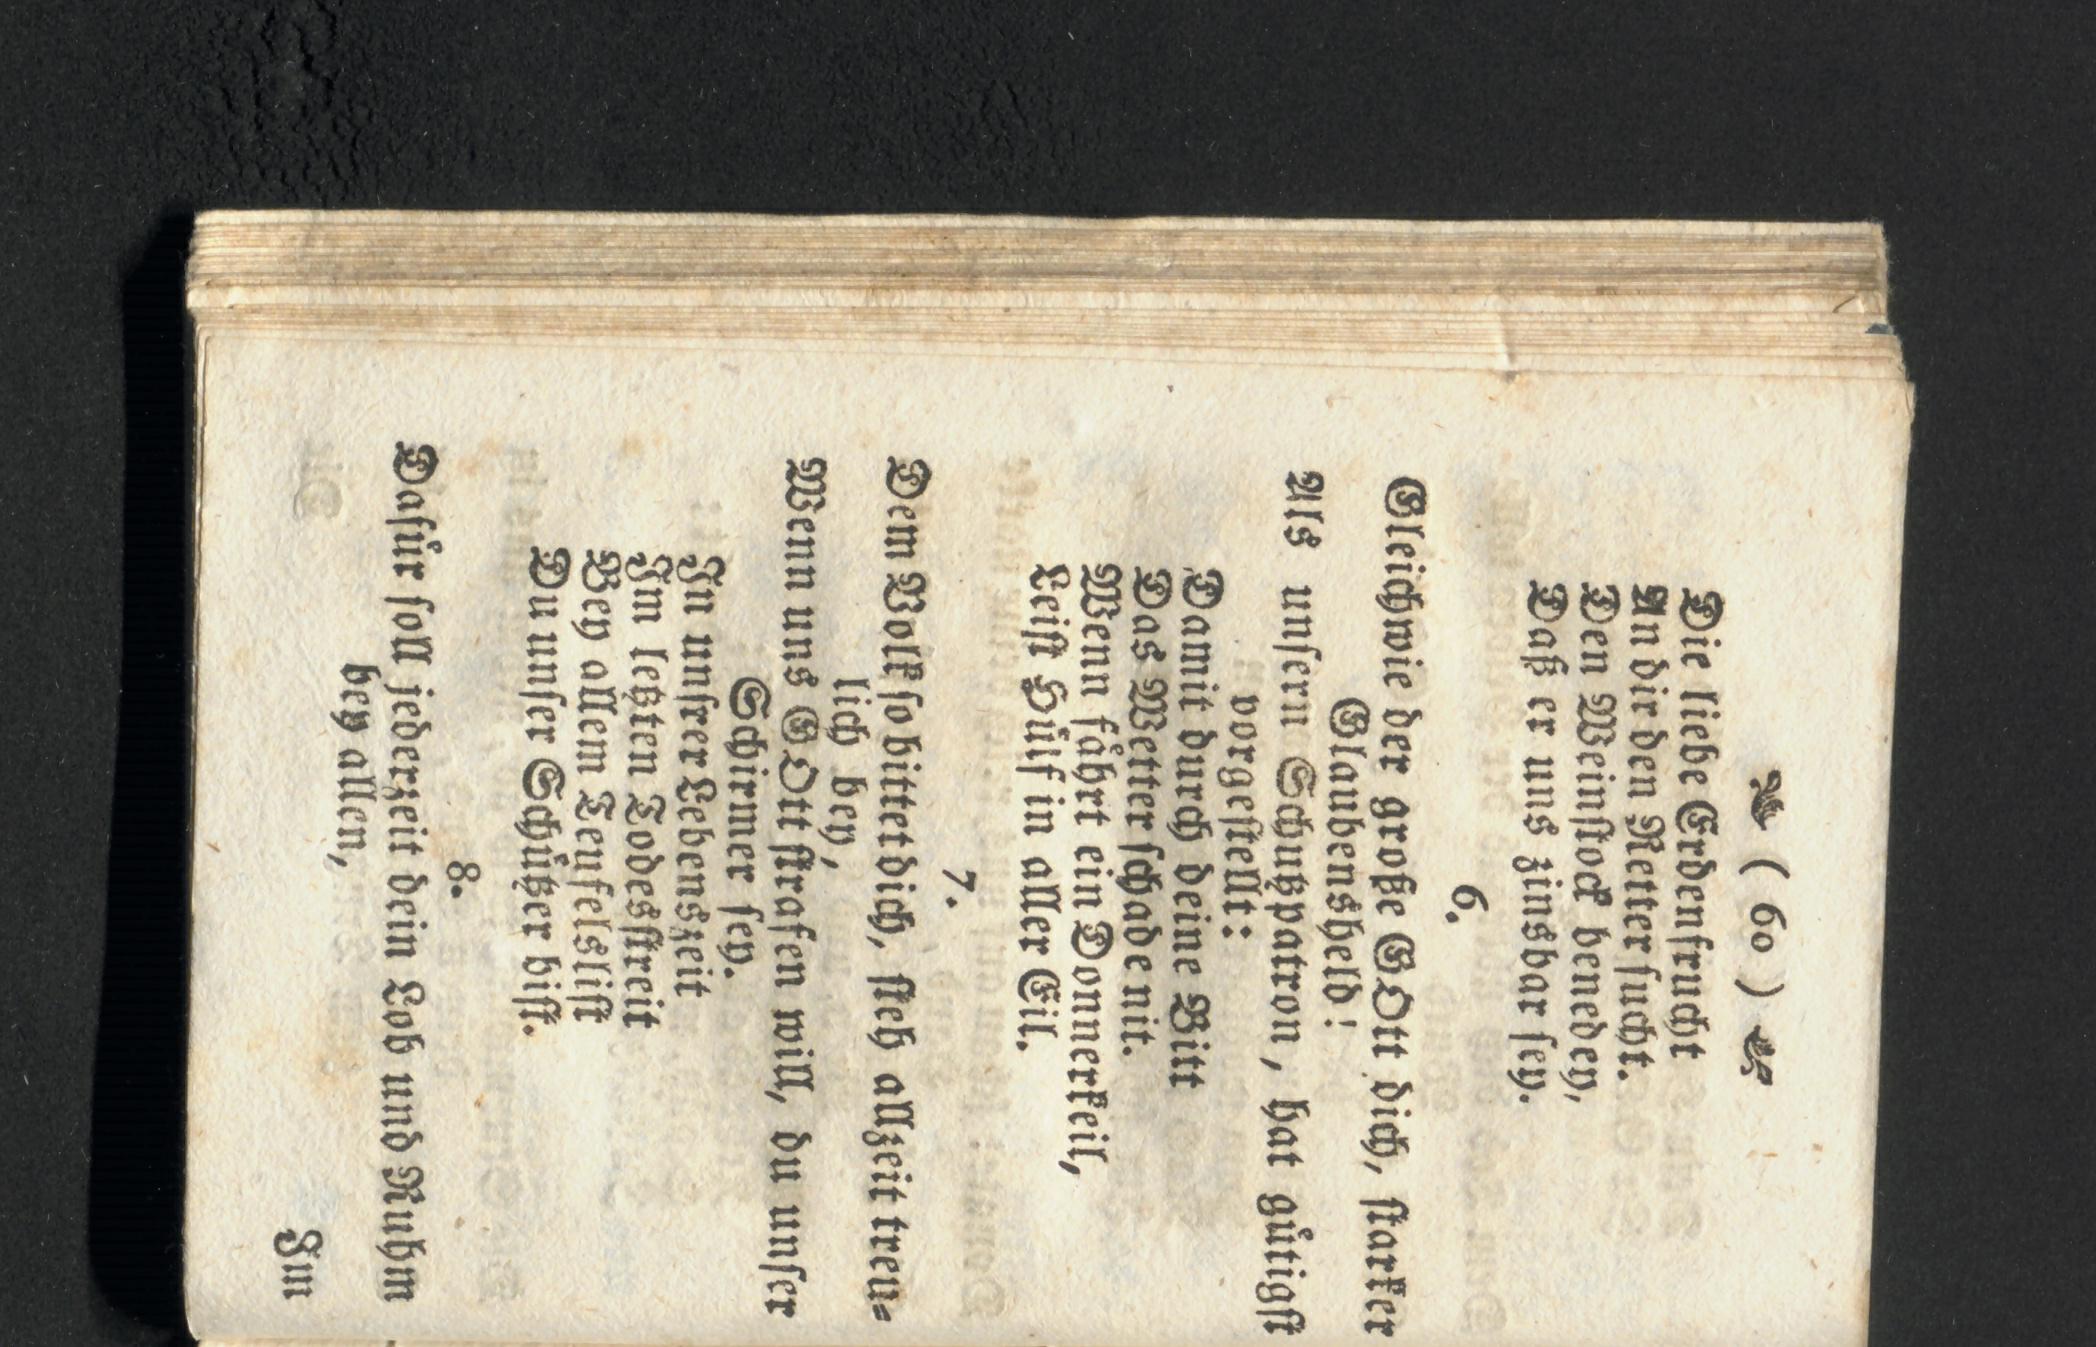 ( 60 )
Die liebe Erdenfrucht
An dir den Retter sucht.
Den Weinstock benedey,
Daß er uns zinsbar sey.
6.
Gleichwie der große GOtt dich, starker
Glaubensheld!
Als unsern Schutzpatron, hat gütigst
vorgestellt:
Damit durch deine Bitt
Das Wetter schade nit.
Wenn fährt ein Donnerkeil,
Leist Hülf in aller Eil.
7.
Dem Volk so bittet dich, steh allzeit treu-
lich bey,
Wenn uns GOtt strafen will, du unser
Schirmer sey.
In unsrer Lebenszeit
Im letzten Todesstreit
Bey allem Teufelslist
Du unser Schützer bist.
8.
Dafür soll jederzeit dein Lob und Ruhm
bey allen,
Im